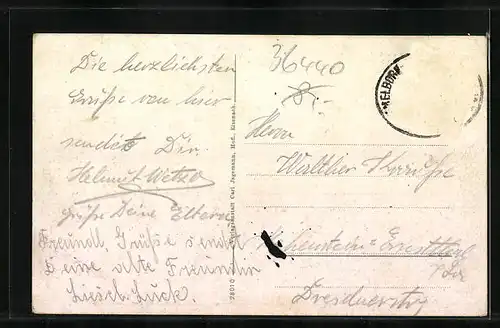 Die herzlichsten
Grüße von hier
sendet Dir
Helmut Wetzel
grüße Deine Eltern
Freundl. Grüße sendet
Deine alte Freundin
Liesel Luck.
36440
ELBORN
Herrn
Walther
Hohenstein-Ernstthal
Dresdnerstr
Carl Jagemann, Hof., Eisenach